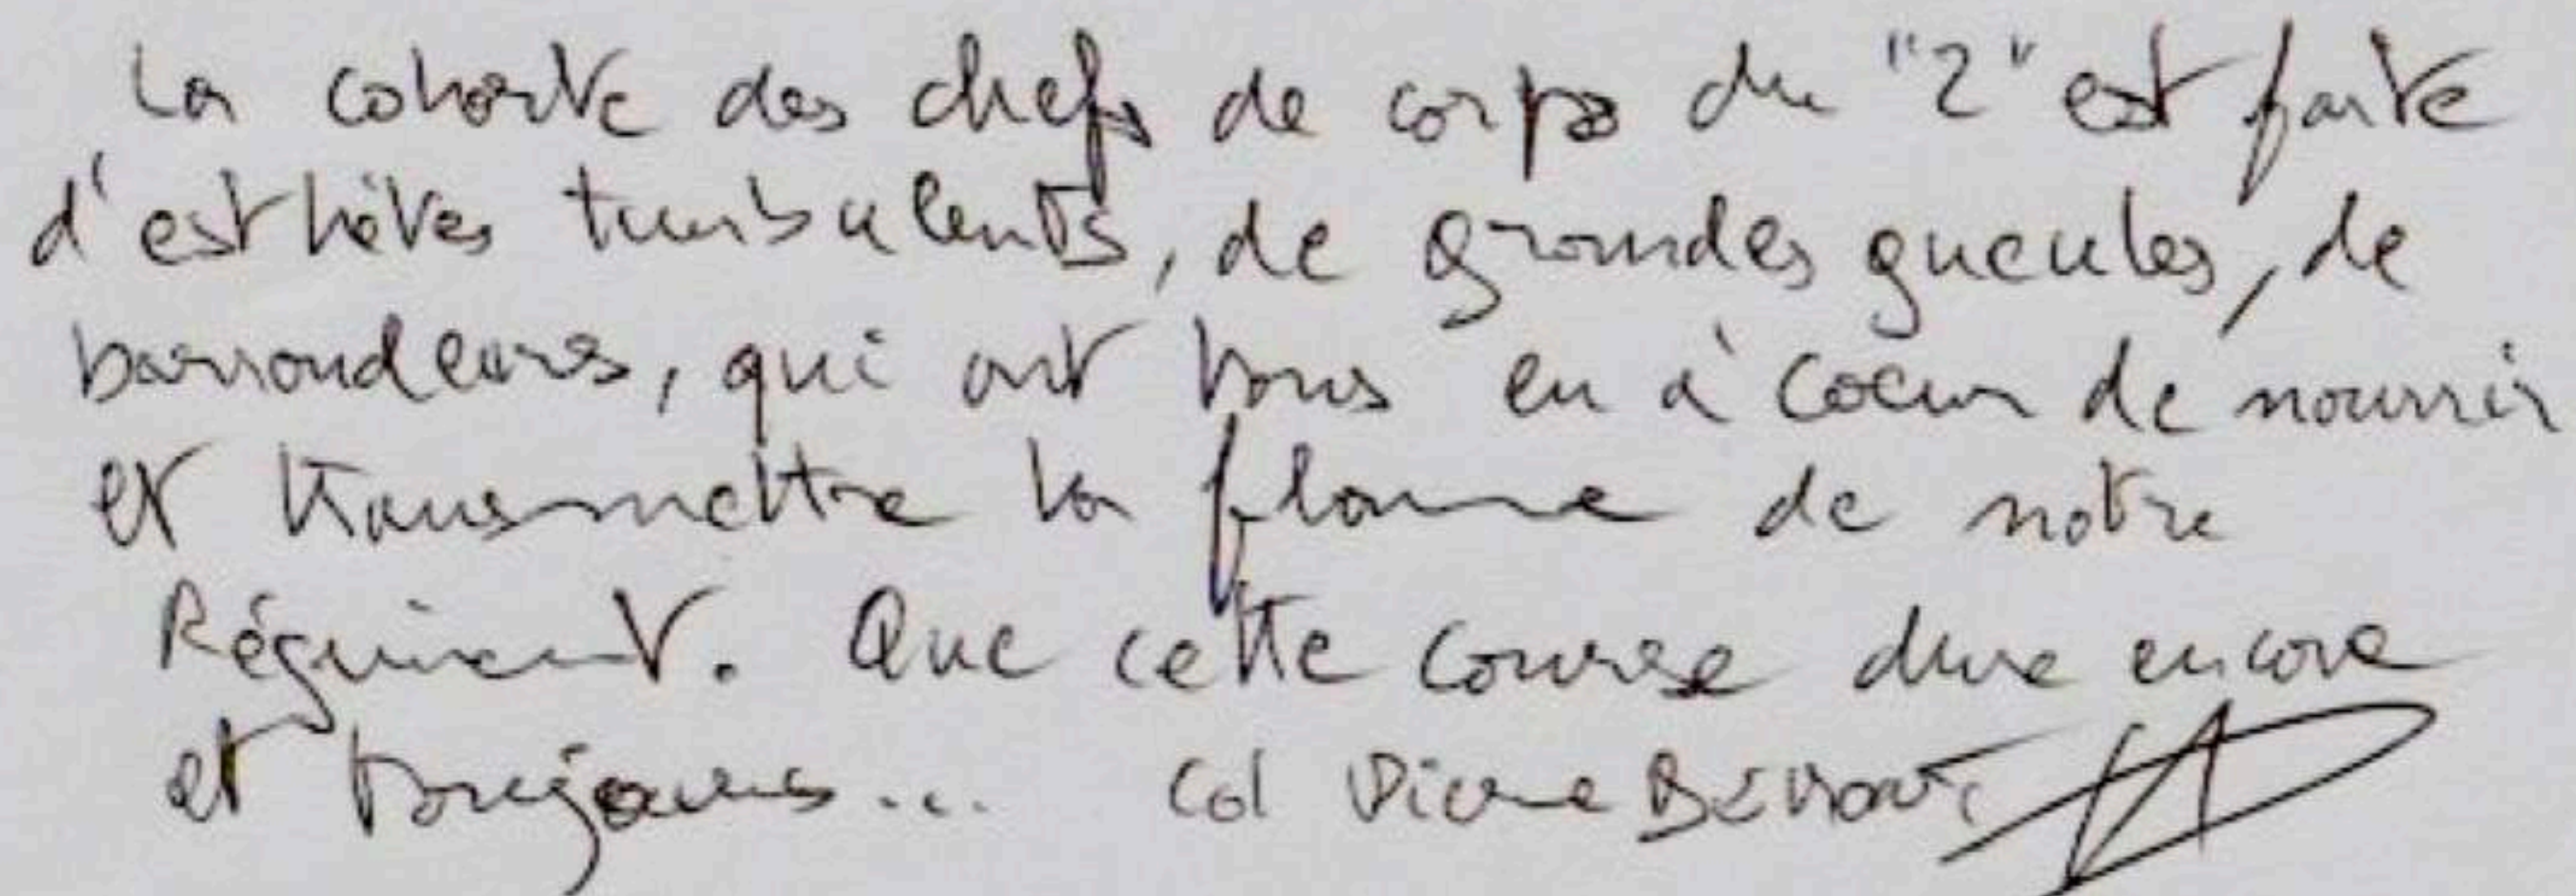 La cohorte des chefs de corps du "2" est faite
d'esthètes turbulents, de grandes gueules, de
barroudeurs, qui ont tous eu à coeur de nourrir
et transmettre la flamme de notre
Régiment. Que cette course dure encore
et toujours... Col Pierre